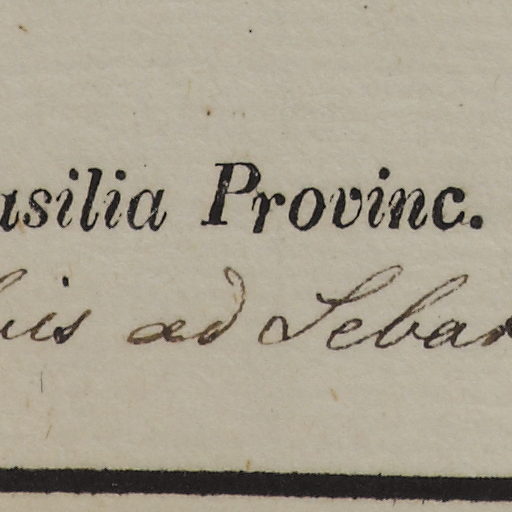 asilia Provinc.
is ad Sebar